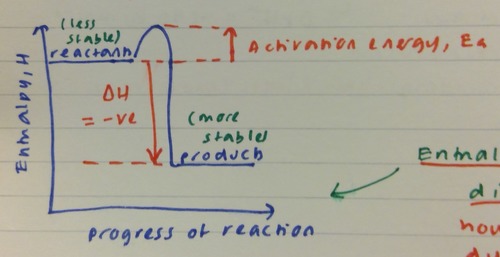 (less
stable)
reactants
Activation energy, Ea
Enthalpy, H
ΔH
= -ve
(more
stable)
products
progress of reaction
Enthal
di
how